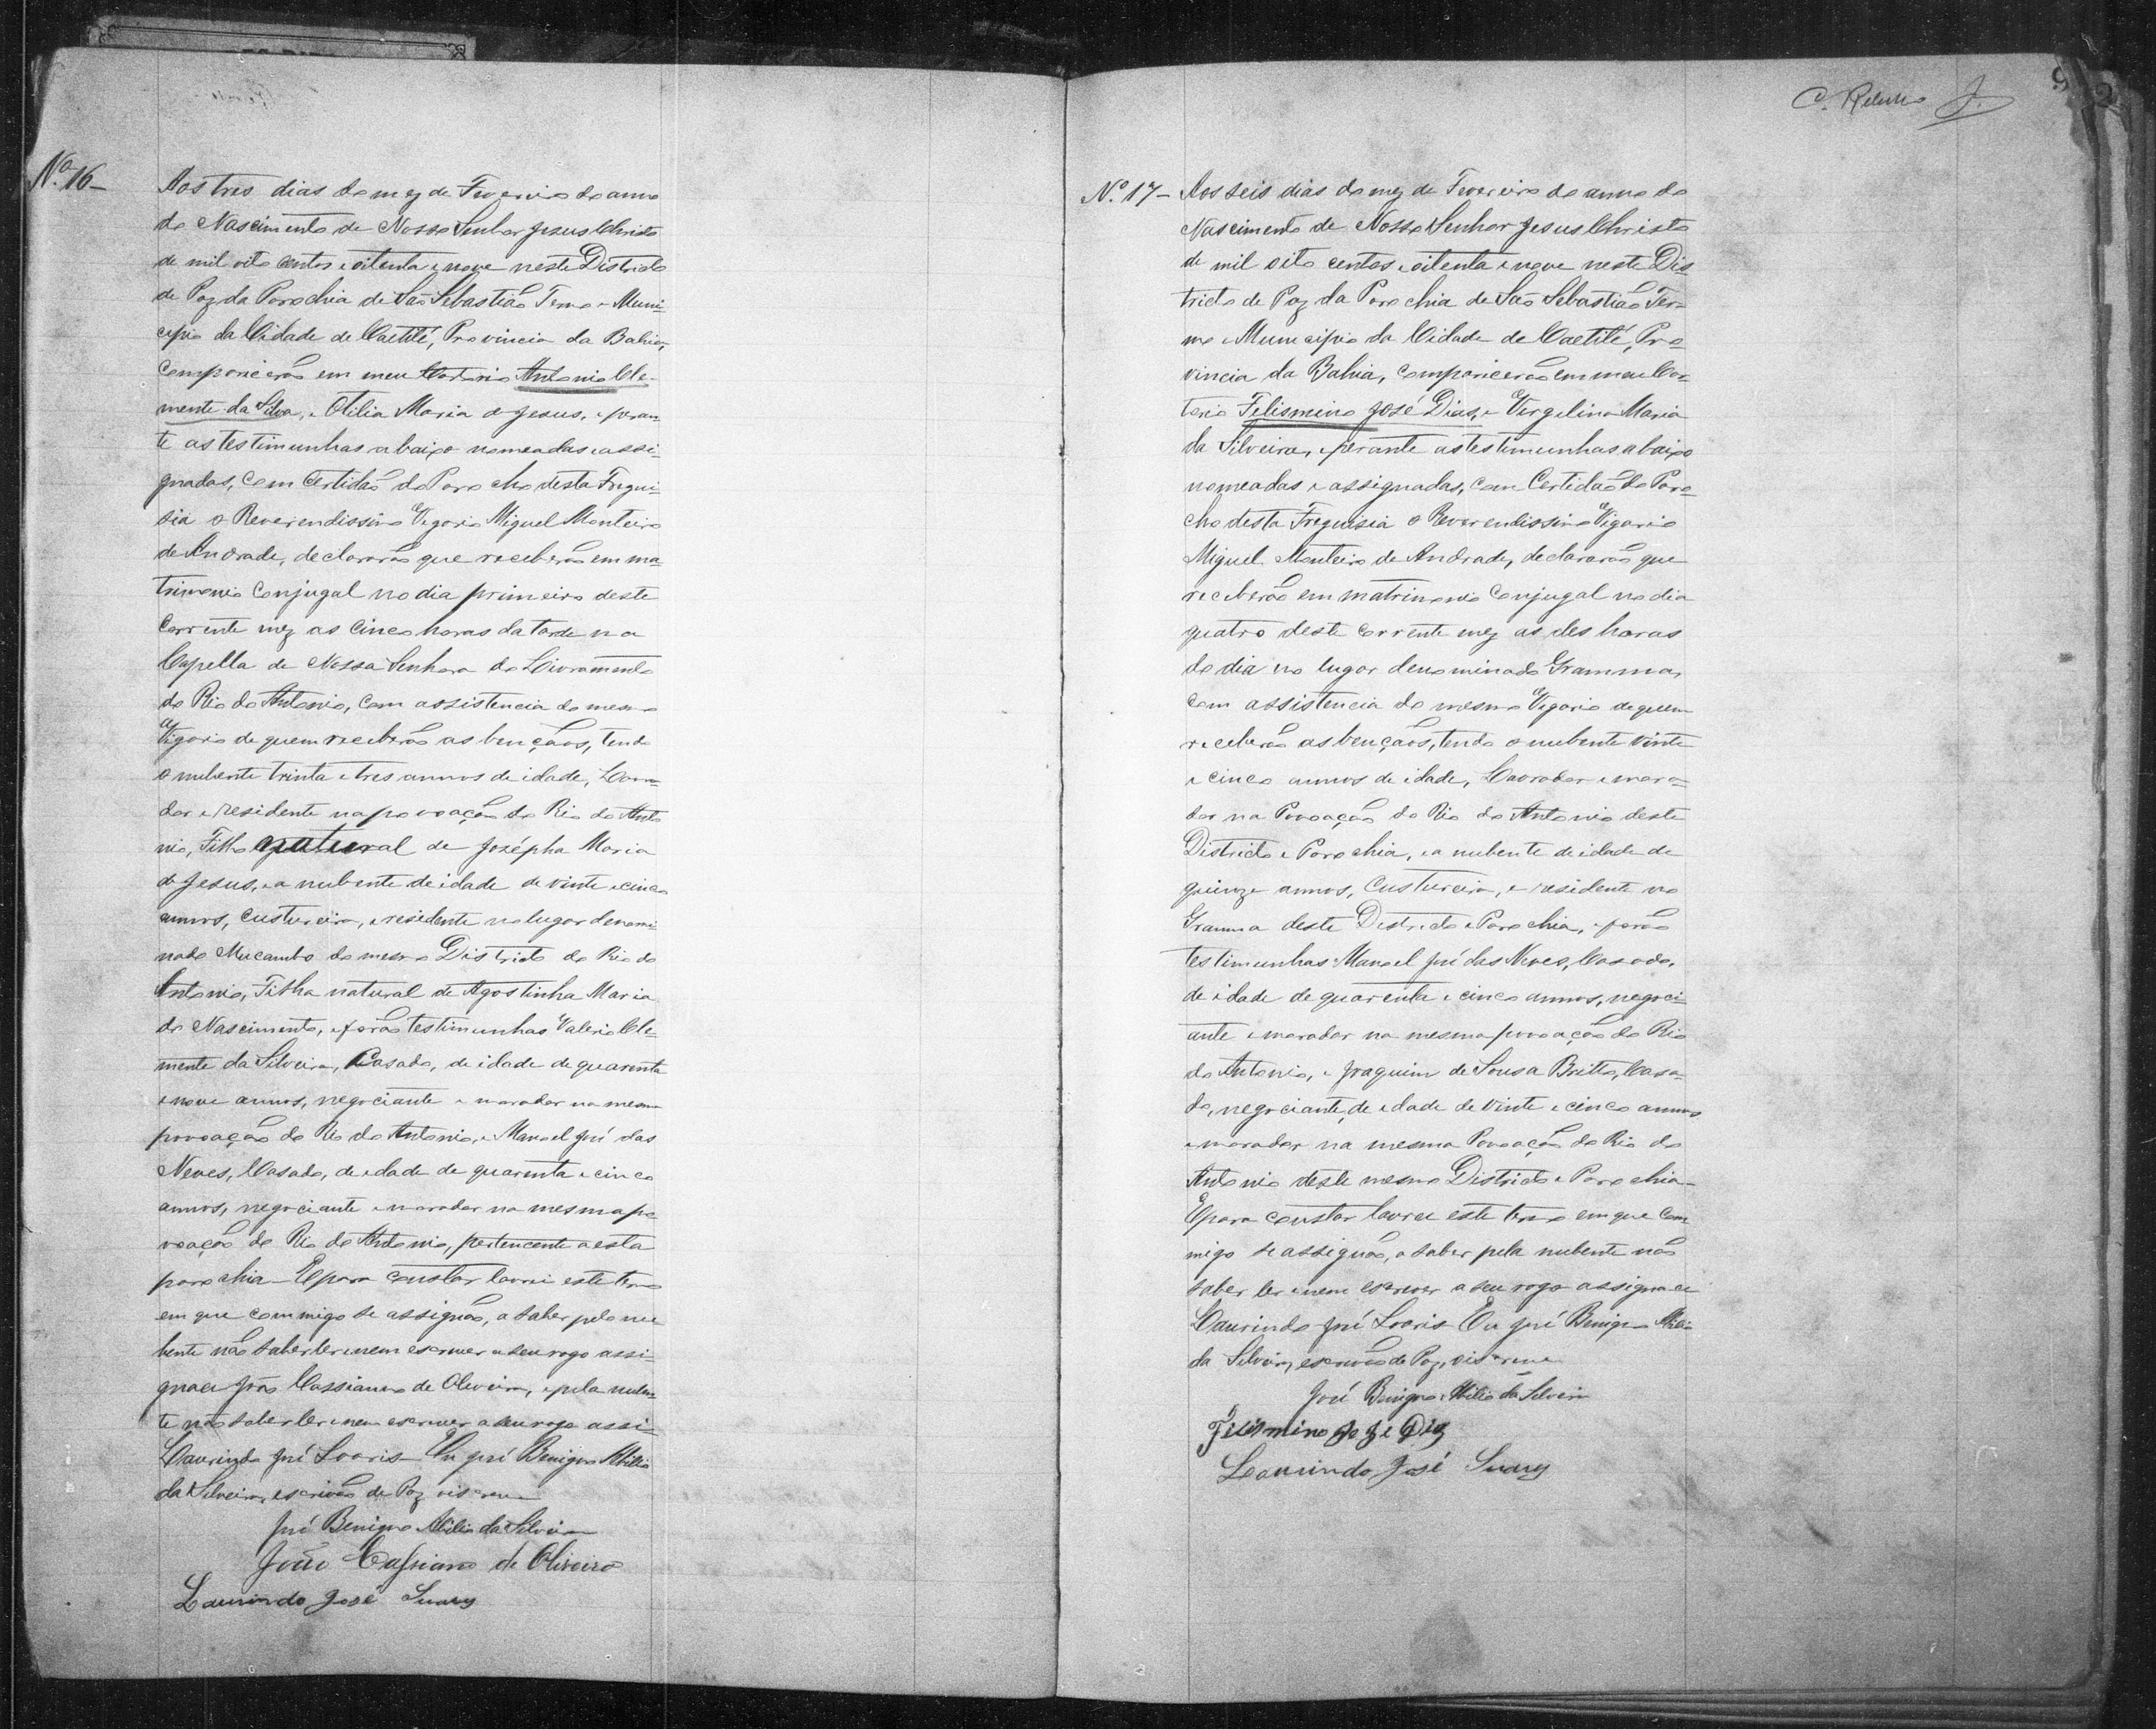 Nº 16-
Aos tres dias do mez de Fevereiro do anno
do Nascimento de Nosso Senhor Jesus Christo
de mil oito centos e oitenta e nove neste Districto
de Paz da Parochia de São Sebastião Termo e Muni-
cipio da Cidade de Caetité, Provincia da Bahia,
comparecerão em meu Cartorio Antonio Cle-
mente da Silva, e Otilia Maria de Jesus, e peran-
te as testimunhas abaixo nomeadas e assi-
gnadas, com Certidão do Parocho desta Fregui-
sia o Reverendissimo Vigario Miguel Monteiro
de Andrade, declararão que receberão em ma-
trimonio Conjugal no dia primeiro deste
Corrente mez as Cinco horas da tarde na
Capella de Nossa Senhora do Livramento
do Rio do Antonio, com assistencia do mesmo
Vigario de quem receberão as bençãos, tendo
o nubente trinta e tres annos de idade, Lavra-
dor e residente na povoação do Rio do Anto
nio, Filho natural de Jozépha Maria
de Jesus, e a nubente de idade de vinte e cinco
annos, Custureira, e residente no lugar denomi-
nado Mucambo do mesmo Districto do Rio do
Antonio, Filha natural de Agostinha Maria
do Nascimento, e forão testimunhas Valerio Cle-
mente da Silveira, Casado, de idade de quarenta
e nove annos, negociante e morador na mesma
povoação do Rio do Antonio, e Manoel José das
Neves, Casado, de idade de quarenta e cinco
annos, negociante e morador na mesma po-
voação do Rio do Antonio, pertencente a esta
parochia - E para constar lavrei este termo
em que commigo se assignão, a saber pelo nu
bente não saber ler e nem escrever a seu rogo assi-
gnou João Cassiano de Oliveira, e pela nuben-
te não saber ler e nem escrever a seu rogo assi-
Laurindo José Soaris Eu José Benigno Abilio
da Silveira, escrivão de Paz, o iscrevi
José Benigno Abilio da Silveira
João Cassiano de Oliveira
Laurindo José Suares
C.
9
Nº 17- Aos seis dias do mez de Fevereiro do anno do
Nascimento de Nosso Senhor Jesus Christo
de mil oito centos e oitenta e nove neste Dis
tricto de Paz da Parochia de São Sebastião Ter-
mo e Municipio da Cidade de Caetité, Pro-
vincia da Bahia, comparecerão em meu Car-
torio Felismino José Dias, e Vergelina Maria
da Silveira, e perante as testimunhas abaixo
nomeadas e assignadas, com Certidão do Paro-
cho desta Freguisia o Reverendissimo Vigario
Miguel Monteiro de Andrade, declararão que
receberão em matrimonio Conjugal no dia
quatro deste corrente mez as des horas
do dia no lugar denominado Gramma,
com assistencia do mesmo Vigario de quem
receberão as bençãos, tendo o nubente vinte
e cinco annos de idade, Lavrador e mora-
dor na Povoação do Rio do Antonio deste
Districto e Parochia, e a nubente de idade de
quinze annos, Custureira, e residente no
Gramma deste Districto e Parochia, e forão
testimunhas Manoel José das Neves, Casado,
de idade de quarenta e cinco annos, negoci-
ante e morador na mesma povoação do Rio
do Antonio, e Joaquim de Sousa Britto, Casa-
do, negociante, de idade de vinte e cinco annos
e morador na mesma Povoação do Rio do
Antonio deste mesmo Districto e Parochia-
E para constar lavrei este termo em que Com
migo se assignão, a saber pela nubente não
saber ler e nem escrever a seu rogo assignou
Laurindo José Soaris Eu José Benigno Abilio
da Silveira, escrivão de Paz, o iscrevi
José Benigno Abilio da Silveira
Felismino Joze Diz
Laurindo José Suares